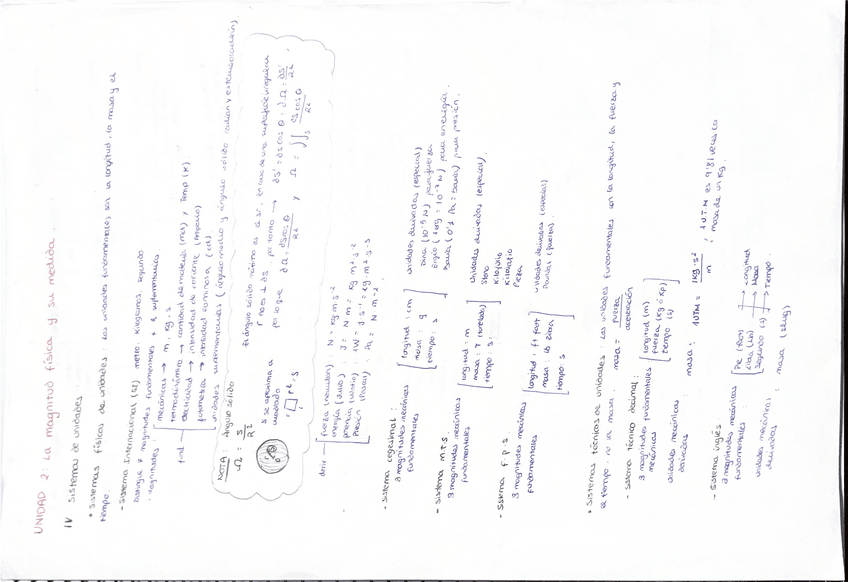 UNIDAD 2: La magnitud física y su medida.
IV Sistemas de unidades
* Sistemas físicas de unidades: Las unidades fundamentales son la longitud, la masa y el
tiempo.
- Sistema Internacional (SI) metro. Kilogramos segundo
Distingue 7 magnitudes fundamentales + 2 suplementarias
· Magnitudes:
fund
mecánicas → m. kg. s
termodinámica → cantidad de materia (mol) y Temp (K)
electricidad → intensidad de corriente (Amperio)
fotometría → intensidad luminosa (cd)
unidades suplementarias (ángulo medio y ángulo sólido radián y estereorradián).
NOTA: Ángulo sólido
Ω = S / R²
S se aproxima a
cuadrado
El ángulo sólido mínimo es
r no es ⊥ ds. por tomo → ds' = ds cos θ
por lo que dΩ = ds cos θ / R² y Ω = ∫∫s ds cos θ / R²
deriv
fuerza (newton): N = kg m s⁻²
energía (Julio): J = N m = kg m² s⁻²
potencia (Watio): 1W = J·s⁻¹ = kg·m² s⁻³
Presión (Pascal): Pa = N m⁻²
- Sistema cegesimal:
3 magnitudes mecánicas
fundamentales
longitud: cm
masa: g
tiempo: s
unidades derivadas (especial)
Dina (10⁻⁵ N) para fuerza
Ergio (1 erg = 10⁻⁷ N) para energía
Baria (0'1 Pa = baria) para presión.
- Sistema M.T.S
3 magnitudes mecánicas
fundamentales
longitud: m
masa: T (tonelada)
tiempo: s
Unidades derivadas (especial).
Steno
Kilojulio
Kilovatio
Pieza
- Sistema F.P.S
3 magnitudes mecánicas
fundamentales
longitud: ft foot
masa: lb libra
tiempo: s
unidades derivadas (especial)
Poundal (fuerza).
* Sistemas técnicos de unidades: Las unidades fundamentales son la longitud, la fuerza y
el tiempo. no la masa. masa = fuerza / aceleración
- Sistema técnico decimal:
3 magnitudes fundamentales
mecánicas
longitud (m)
fuerza (Kg = Kp)
tiempo (s)
unidades mecánicas
derivadas
masa: 1UTM = 1Kg·s² / m
1 U.T.M es 9'81 veces la
masa de un Kg.
- Sistema inglés
3 magnitudes mecánicas
fundamentales:
Pie → Longitud
Libra (Lb) → Masa
Segundo (s) → Tiempo
unidades mecánicas
derivadas
: masa (slug)